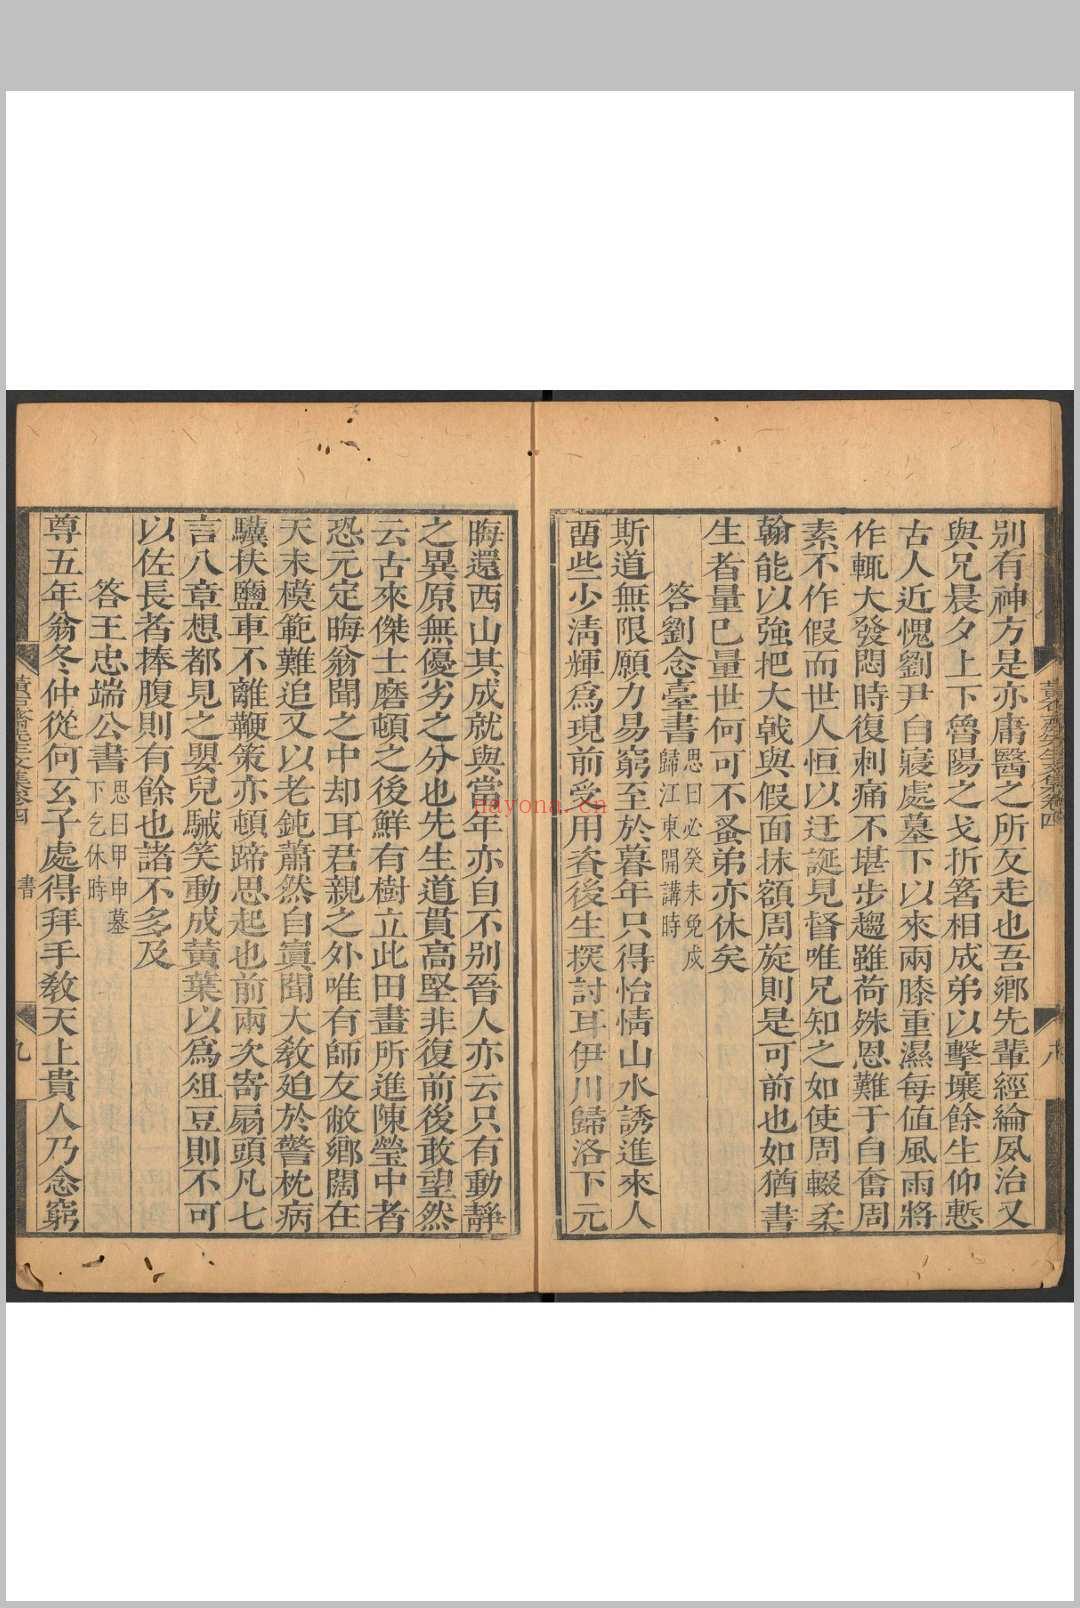 別有神方是亦庸醫之所反走也吾鄉先輩經綸夙治又
與兄晨夕上下魯陽之戈折箸相成弟以擊壤餘生仰慙
古人近愧劉尹自寢處墓下以來兩膝重濕每值風雨將
作輒大發悶時復刺痛不堪步趨雖荷殊恩難于自奮周
素不作假而世人恒以迂誕見督唯兄知之如使周輟柔
翰能以強把大戟與假面抹額周旋則是可前也如猶書
生者量已量世何可不蚤弟亦休矣
答劉念臺書 思曰必癸未免戍歸江東開講時
斯道無限願力易窮至於暮年只得怡情山水誘進來人
留些少淸輝爲現前受用資後生探討耳伊川歸洛下元
黃石齋先生文集卷四
八
晦還西山其成就與當年亦自不別晉人亦云只有動靜
之異原無優劣之分也先生道貫高堅非復前後敢望然
云古來傑士磨頓之後鮮有樹立此田畫所進陳瑩中者
恐元定晦翁聞之中却耳君親之外唯有師友敝鄉闊在
天末模範難追又以老鈍蕭然自寘聞大敎廹於警枕病
驥扶鹽車不離鞭策亦頓蹄思起也前兩次寄扇頭凡七
言八章想都見之嬰兒駴笑動成黃葉以爲俎豆則不可
以佐長者捧腹則有餘也諸不多及
答王忠端公書 思曰甲申墓下乞休時
尊五年翁冬仲從何玄子處得拜手敎天上貴人乃念窮
黃石齋先生文集卷四
書
九
nayona.cn